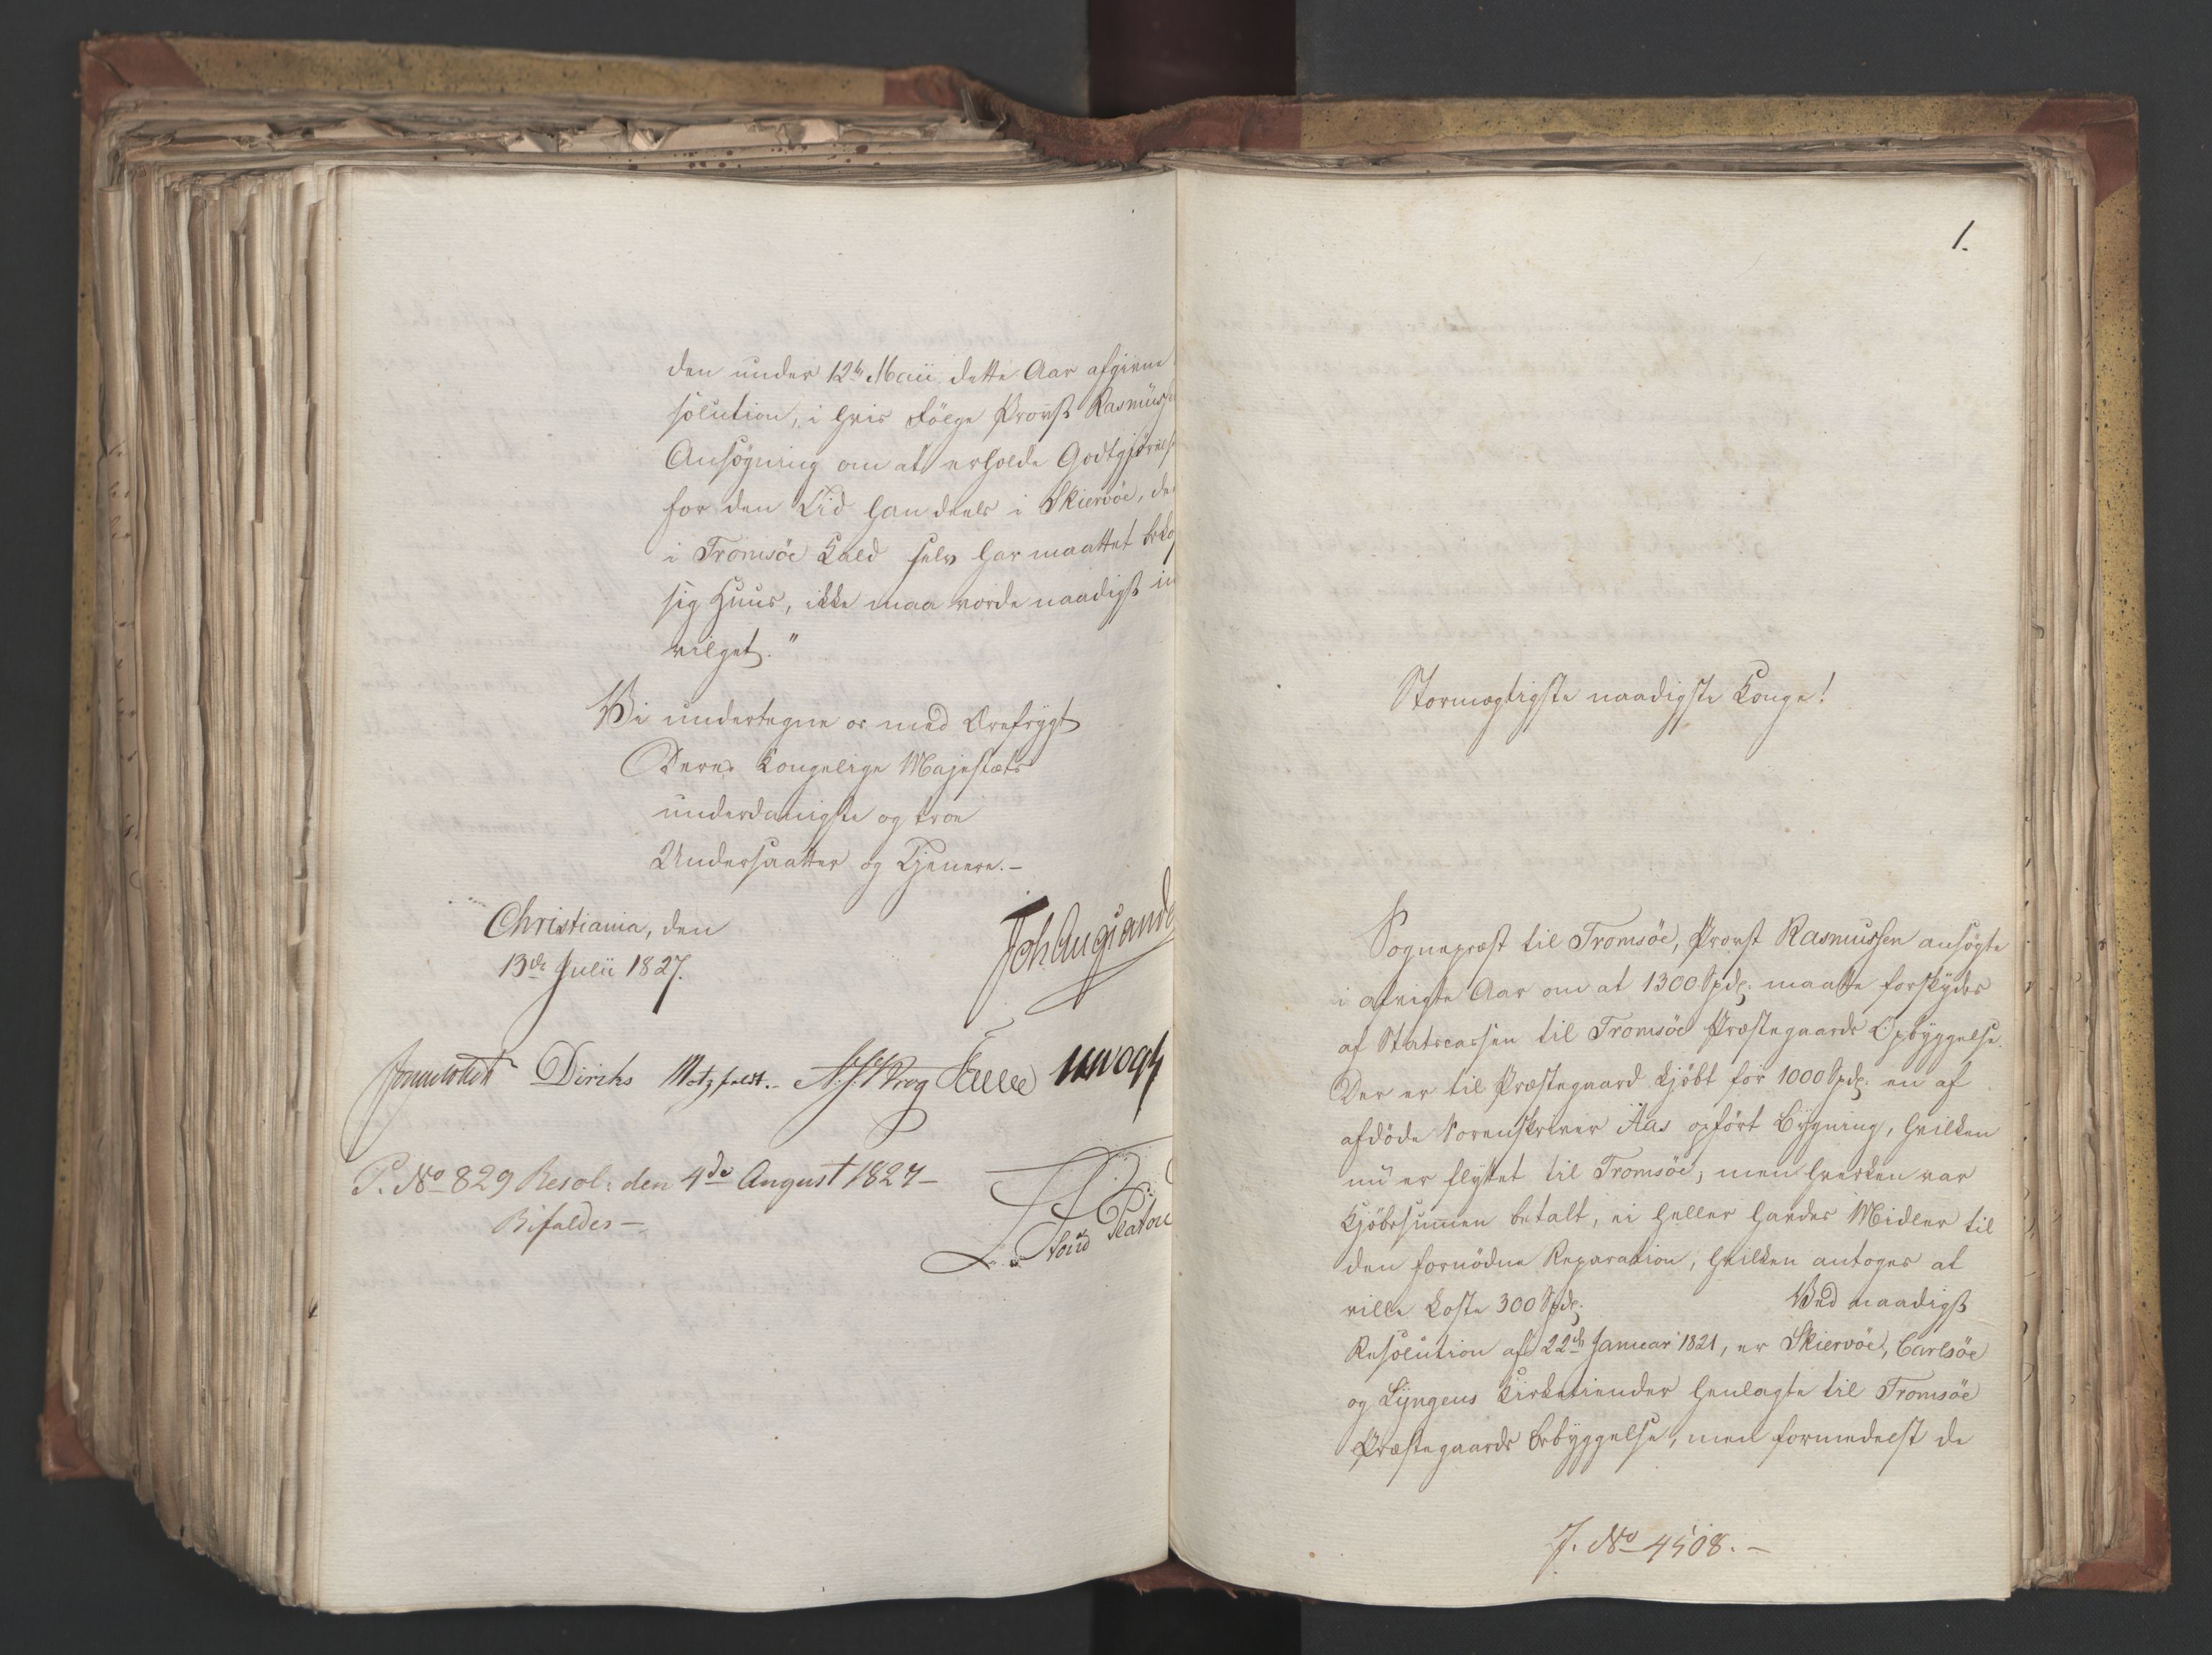 den under 12te Maii dette Aar afgivne
solution, i hvis Følge Provst Rasmusse
Ansøgning om at erholde Godtgjørelse
for den Tid han deels i Skiervöe, de
i Tromsöe Kald selv har maattet beko
sig Huus, ikke maa vorde naadigst in
vilget."
Vi undertegne os med Ærefrygt
Deres Kongelige Majestæts
underdanigste og troe
Undersaatter og Tjenere.-
Christiania, den
13de Julii 1827.
Joh Aug Sande
Diriks Motzfeldt.- Krog
P. No 829 Resol: den 4de August 1827-
Bifaldes-
1.
Stormægtigste naadigste Konge!
Sognepræst til Tromsöe, Provst Rasmussen ansøgte
i afvigte Aar om at 1300 Spd. maatte forskydes
af Statscassen til Tromsöe Præstegaards Opbyggelse.
Der er til Præstegaard kjöbt for 1000 Spd. en af
afdöde Sorenskriver Aas opfört Bygning, hvilken
nu er flyttet til Tromsöe, men hverken var
Kjöbesummen betalt, ei heller havdes Midler til
den fornödne Reparation, hvilken antoges at
ville koste 300 Spd. Ved naadigst
Resolution af 22de Januar 1821, er Skiervöe, Carlsöe
og Lyngens Kirketiender henlagte til Tromsöe
Præstegaards Bebyggelse, men formedelst de
J. No 4508.-